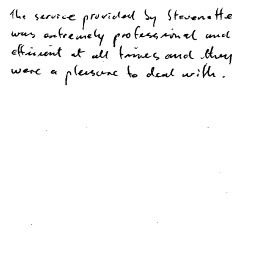 The service provided by Stevenette
was extremely professional and
efficient at all times and they
were a pleasure to deal with.